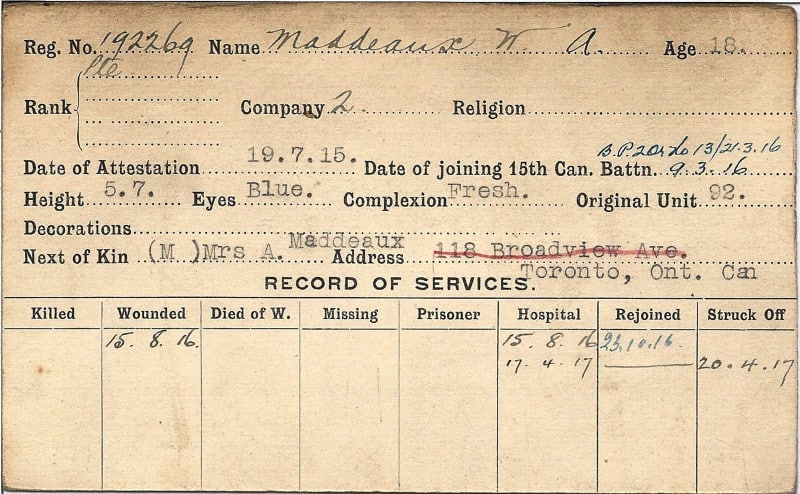 Reg. No. 192269 Name Maddeaux W. A. Age 18.
Pte
Rank Company 2 Religion
B.P. 2 Ordo 13/21.3.16
Date of Attestation 19.7.15. Date of joining 15th Can. Battn. 9.3.16
Height 5.7. Eyes Blue. Complexion Fresh. Original Unit 92.
Decorations
Next of Kin (M )Mrs A. Maddeaux Address 118 Broadview Ave.
Toronto, Ont. Can
RECORD OF SERVICES.
Killed Wounded Died of W. Missing Prisoner Hospital Rejoined Struck Off
15. 8. 16. 15. 8. 16 23.10.16.
17. 4. 17 20. 4. 17